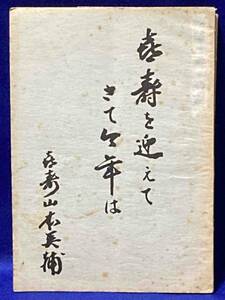 喜寿を迎えて
さて今年は
喜寿山本英補